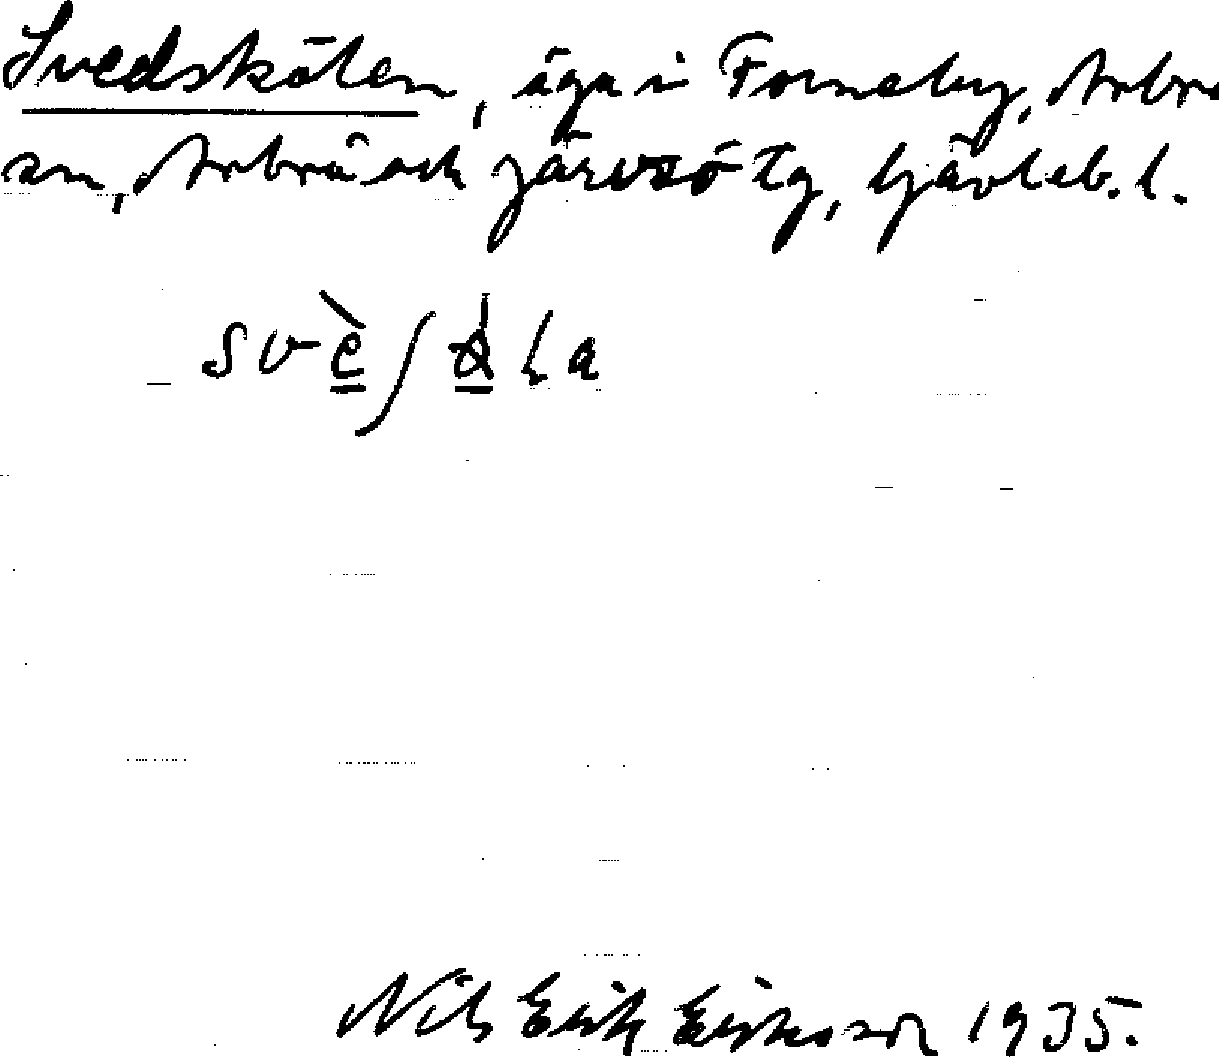 Svedskölen, äga i Forneby, Arbrå
sn, Arbrå och Järvsö tg, Gävleb. l.
Nils Erik Eriksson 1935.